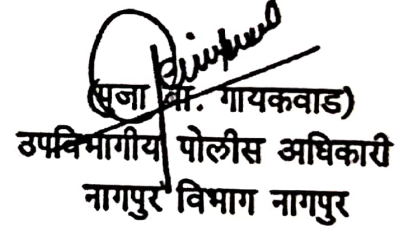 (पुजा वा. गायकवाड)
उपविभागीय पोलीस अधिकारी
नागपुर विभाग नागपुर